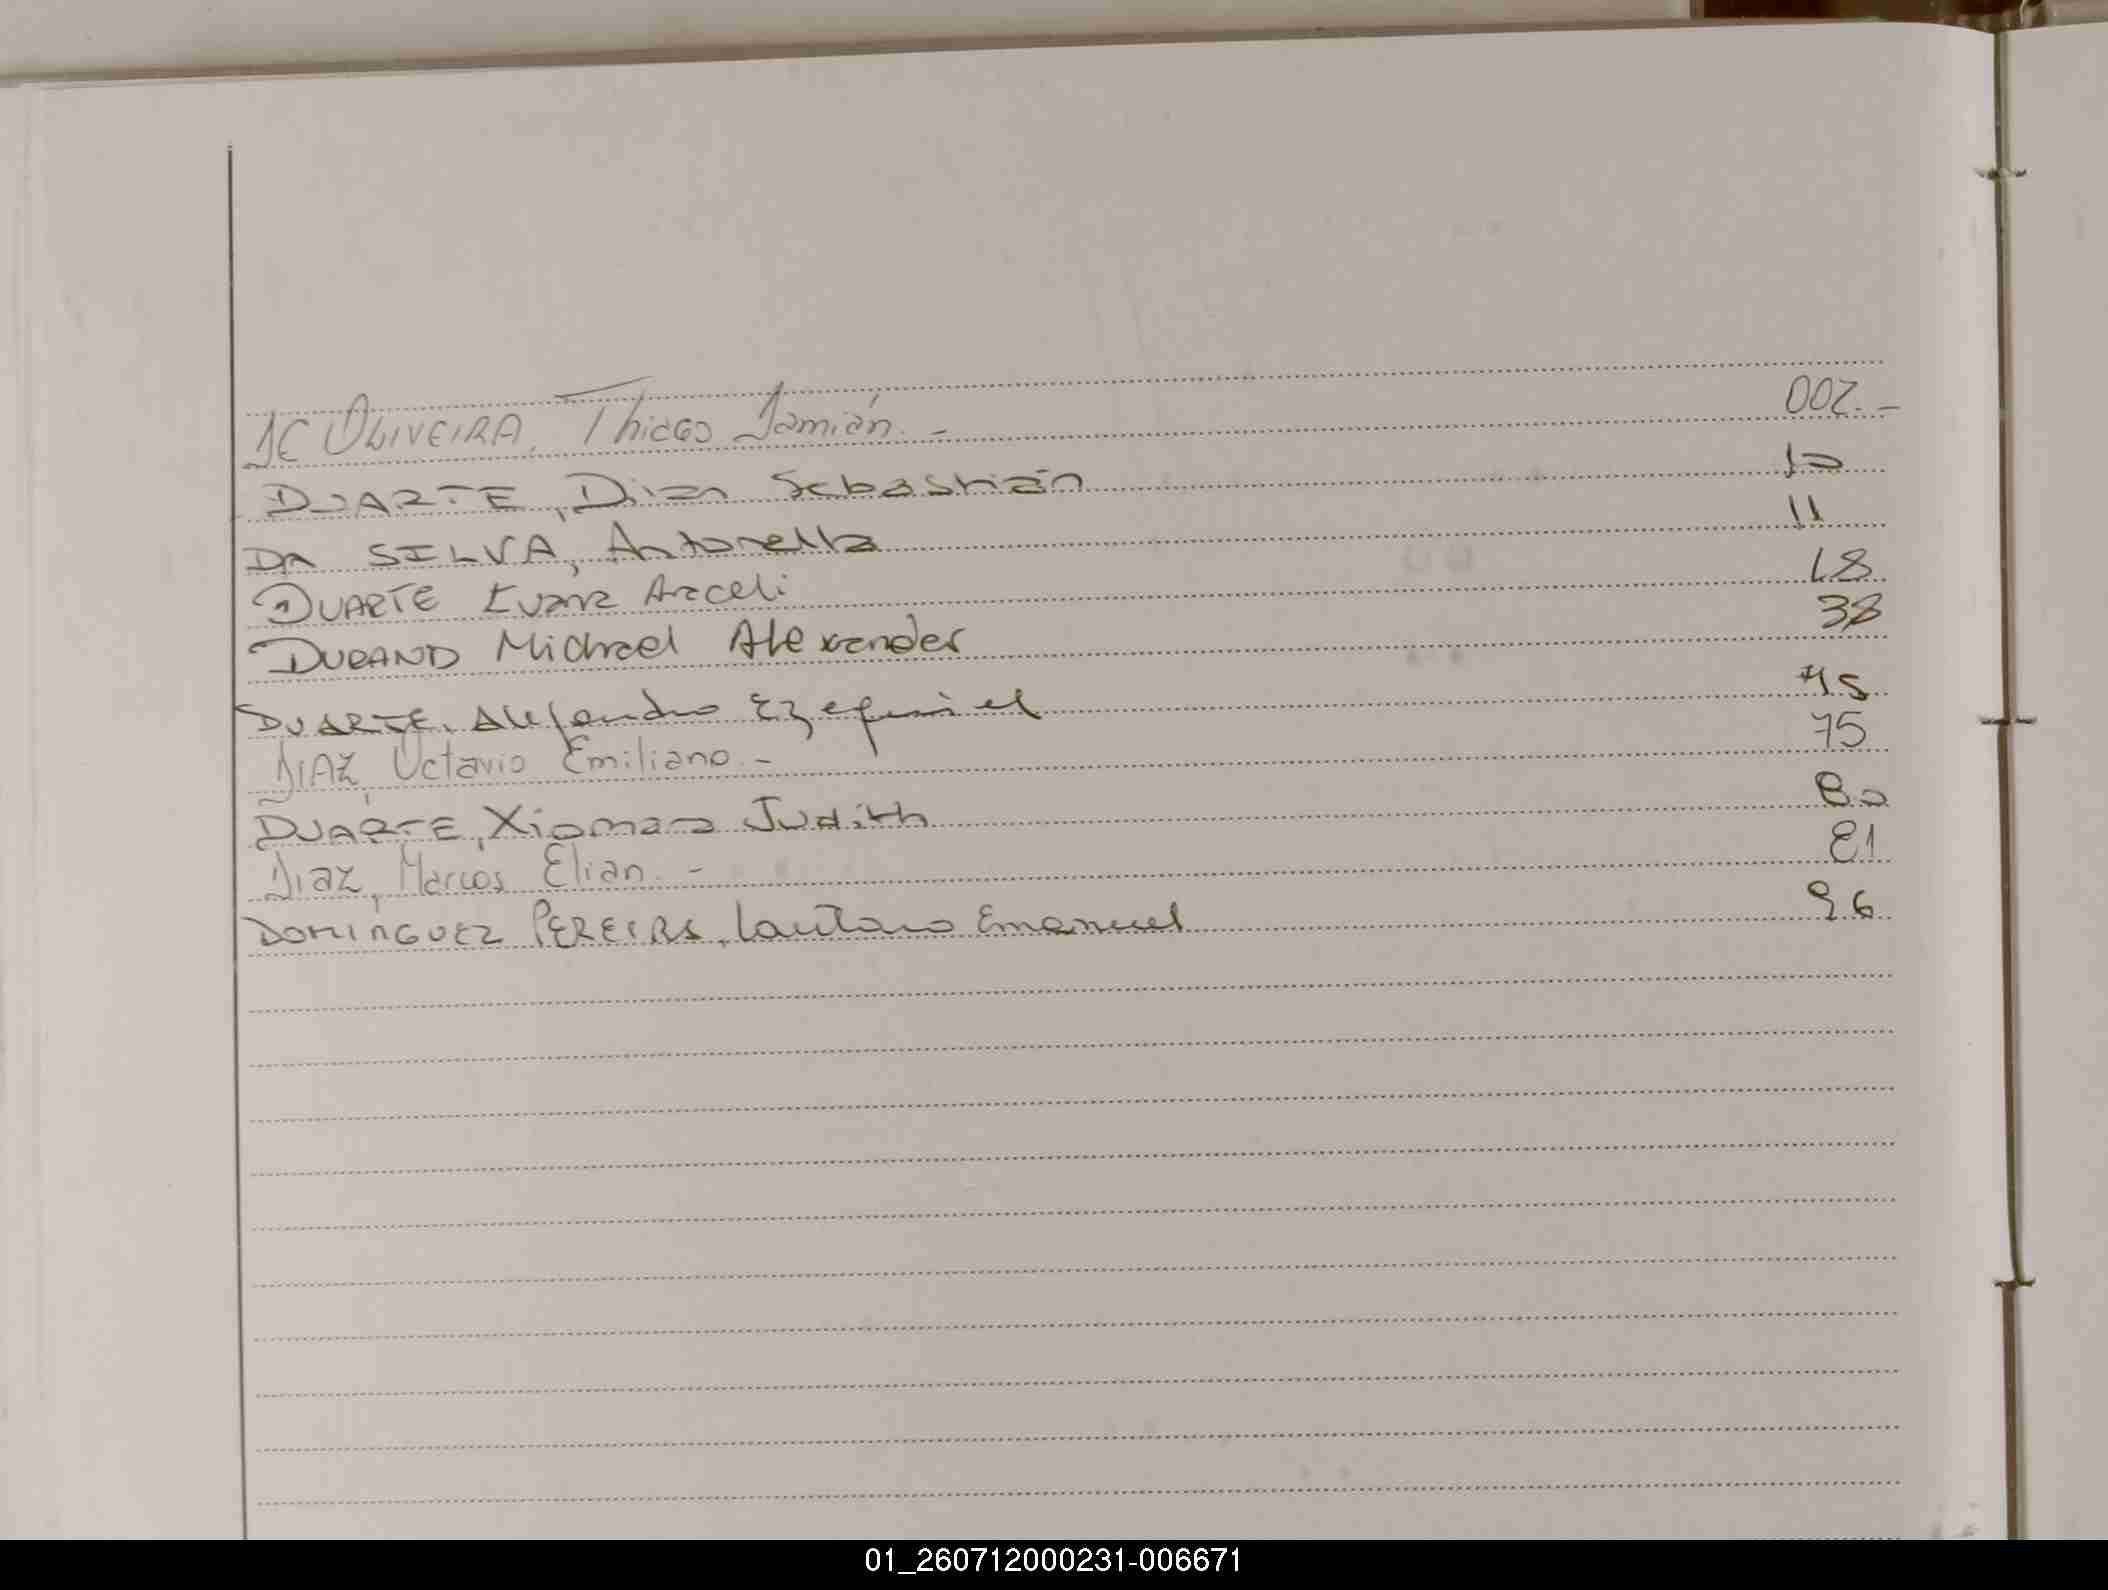 DE OLIVEIRA, Thiago Damián.- 002.-
DUARTE, Dizn Sebastián 10
DA SILVA, Antonella 11
DUARTE Evana Araceli 18
DURAND Michael Alexander 38
DUARTE, Alejandro Ezequiel 45
DIAZ, Octavio Emiliano.- 75
DUARTE, Xiomara Judith 80
Diaz, Marcos Elian.- 81
DOMINGUEZ PEREIRA, Lautaro Emanuel 96
01_260712000231-006671